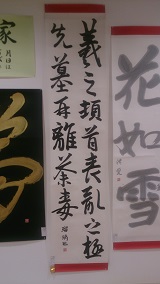 花如雪
羲之頓首喪亂之極
先墓再離荼毒
家